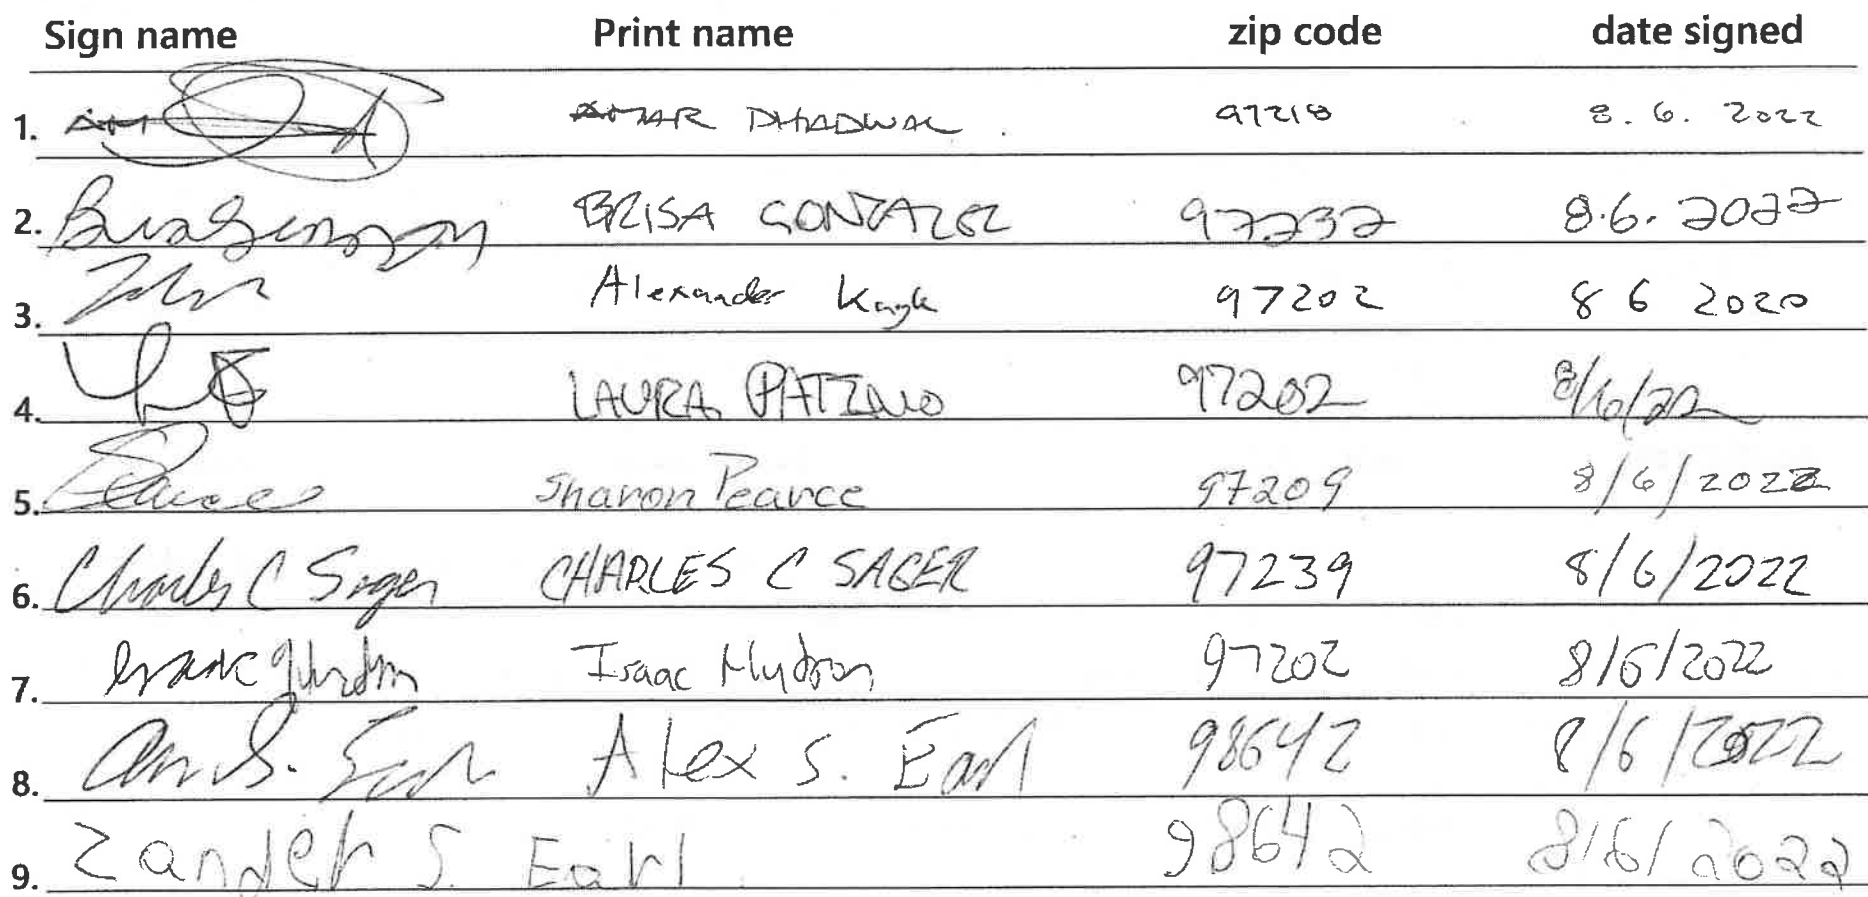 Sign name Print name zip code date signed
1. AMAR DHADWAL 97218 8. 6. 2022
2. BRISA GONZALEZ 97232 8.6. 2022
3. Alexander Kagle 97202 8 6 2020
4. LAURA PATINO 97202 8/6/22
5. Pearce Sharon Pearce 97209 8/6/2022
6. Charles C Sager CHARLES C SAGER 97239 8/6/2022
7. Isaac Isaac 97202 8/6/2022
8. S. Earl Alex S. Earl 98642 8/6/2022
9. Zander S. Earl 98642 8/6/2022